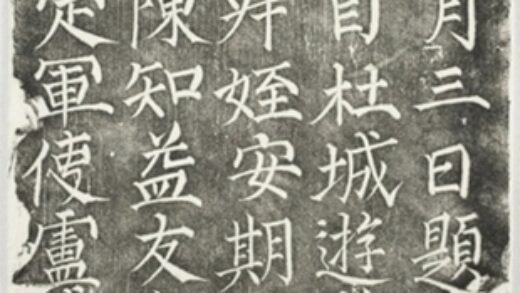 月三日題
自杜城遊
姪安期
陳知益友
定軍使盧